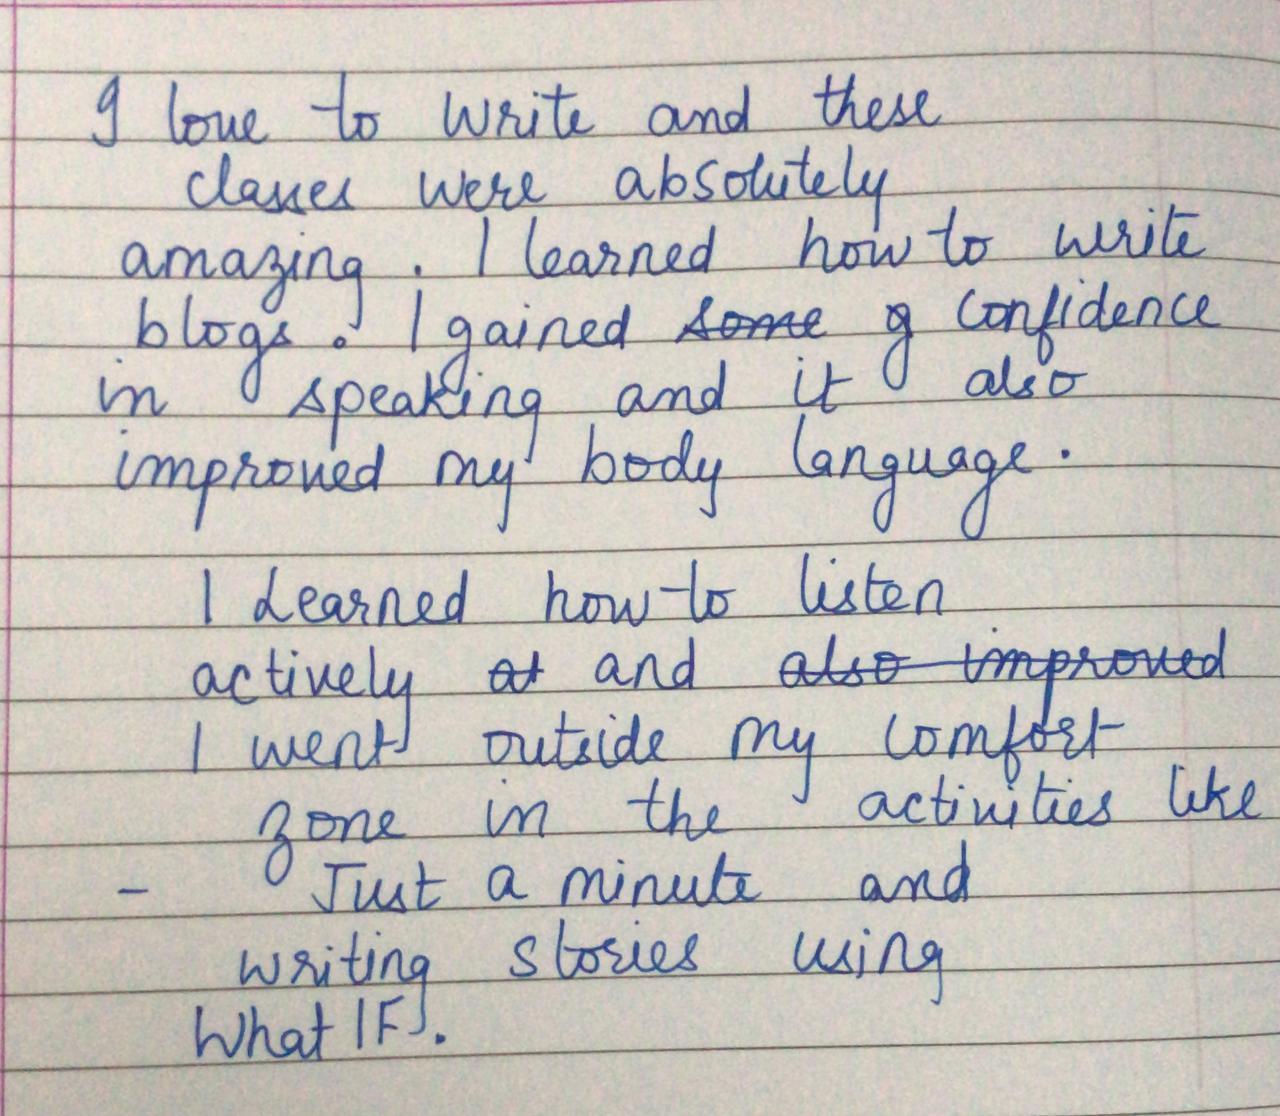 I love to write and these
classes were absolutely
amazing. I learned how to write
blogs. I gained some g confidence
in speaking and it also
improved my body language.
I Learned how to listen
actively at and also improved
I went outside my comfort
zone in the activities like
- Just a minute and
writing stories using
What IF.